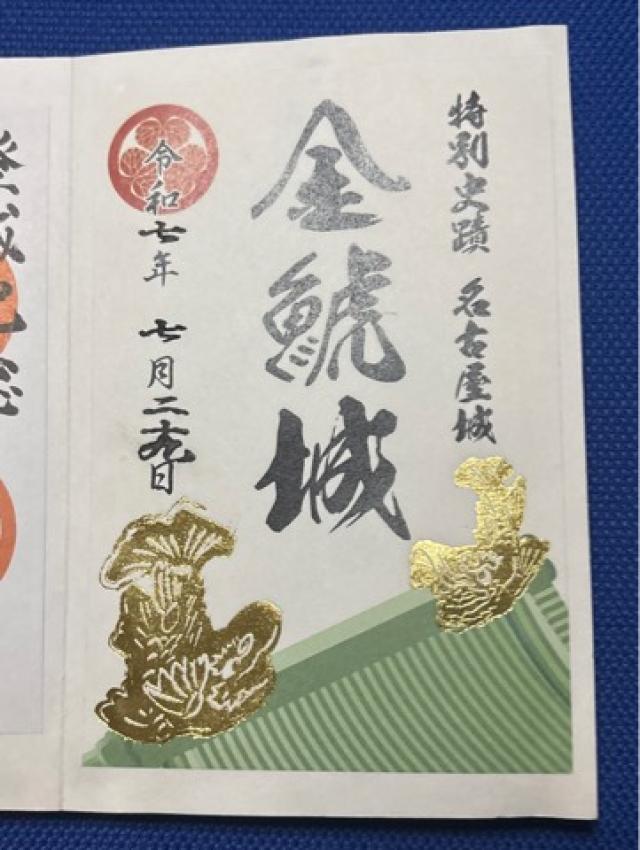 特別史蹟 名古屋城
金鯱城
令和七年 七月二十九日